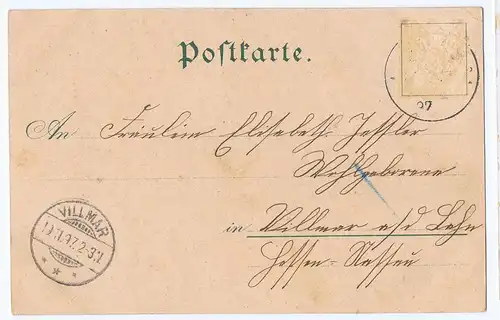 Postkarte.
97
An Fräulein Elisabeth
Wohlgeboren
in Villmar a/d Lahn
Hessen-Nassau
VILLMAR
97. 2-3N